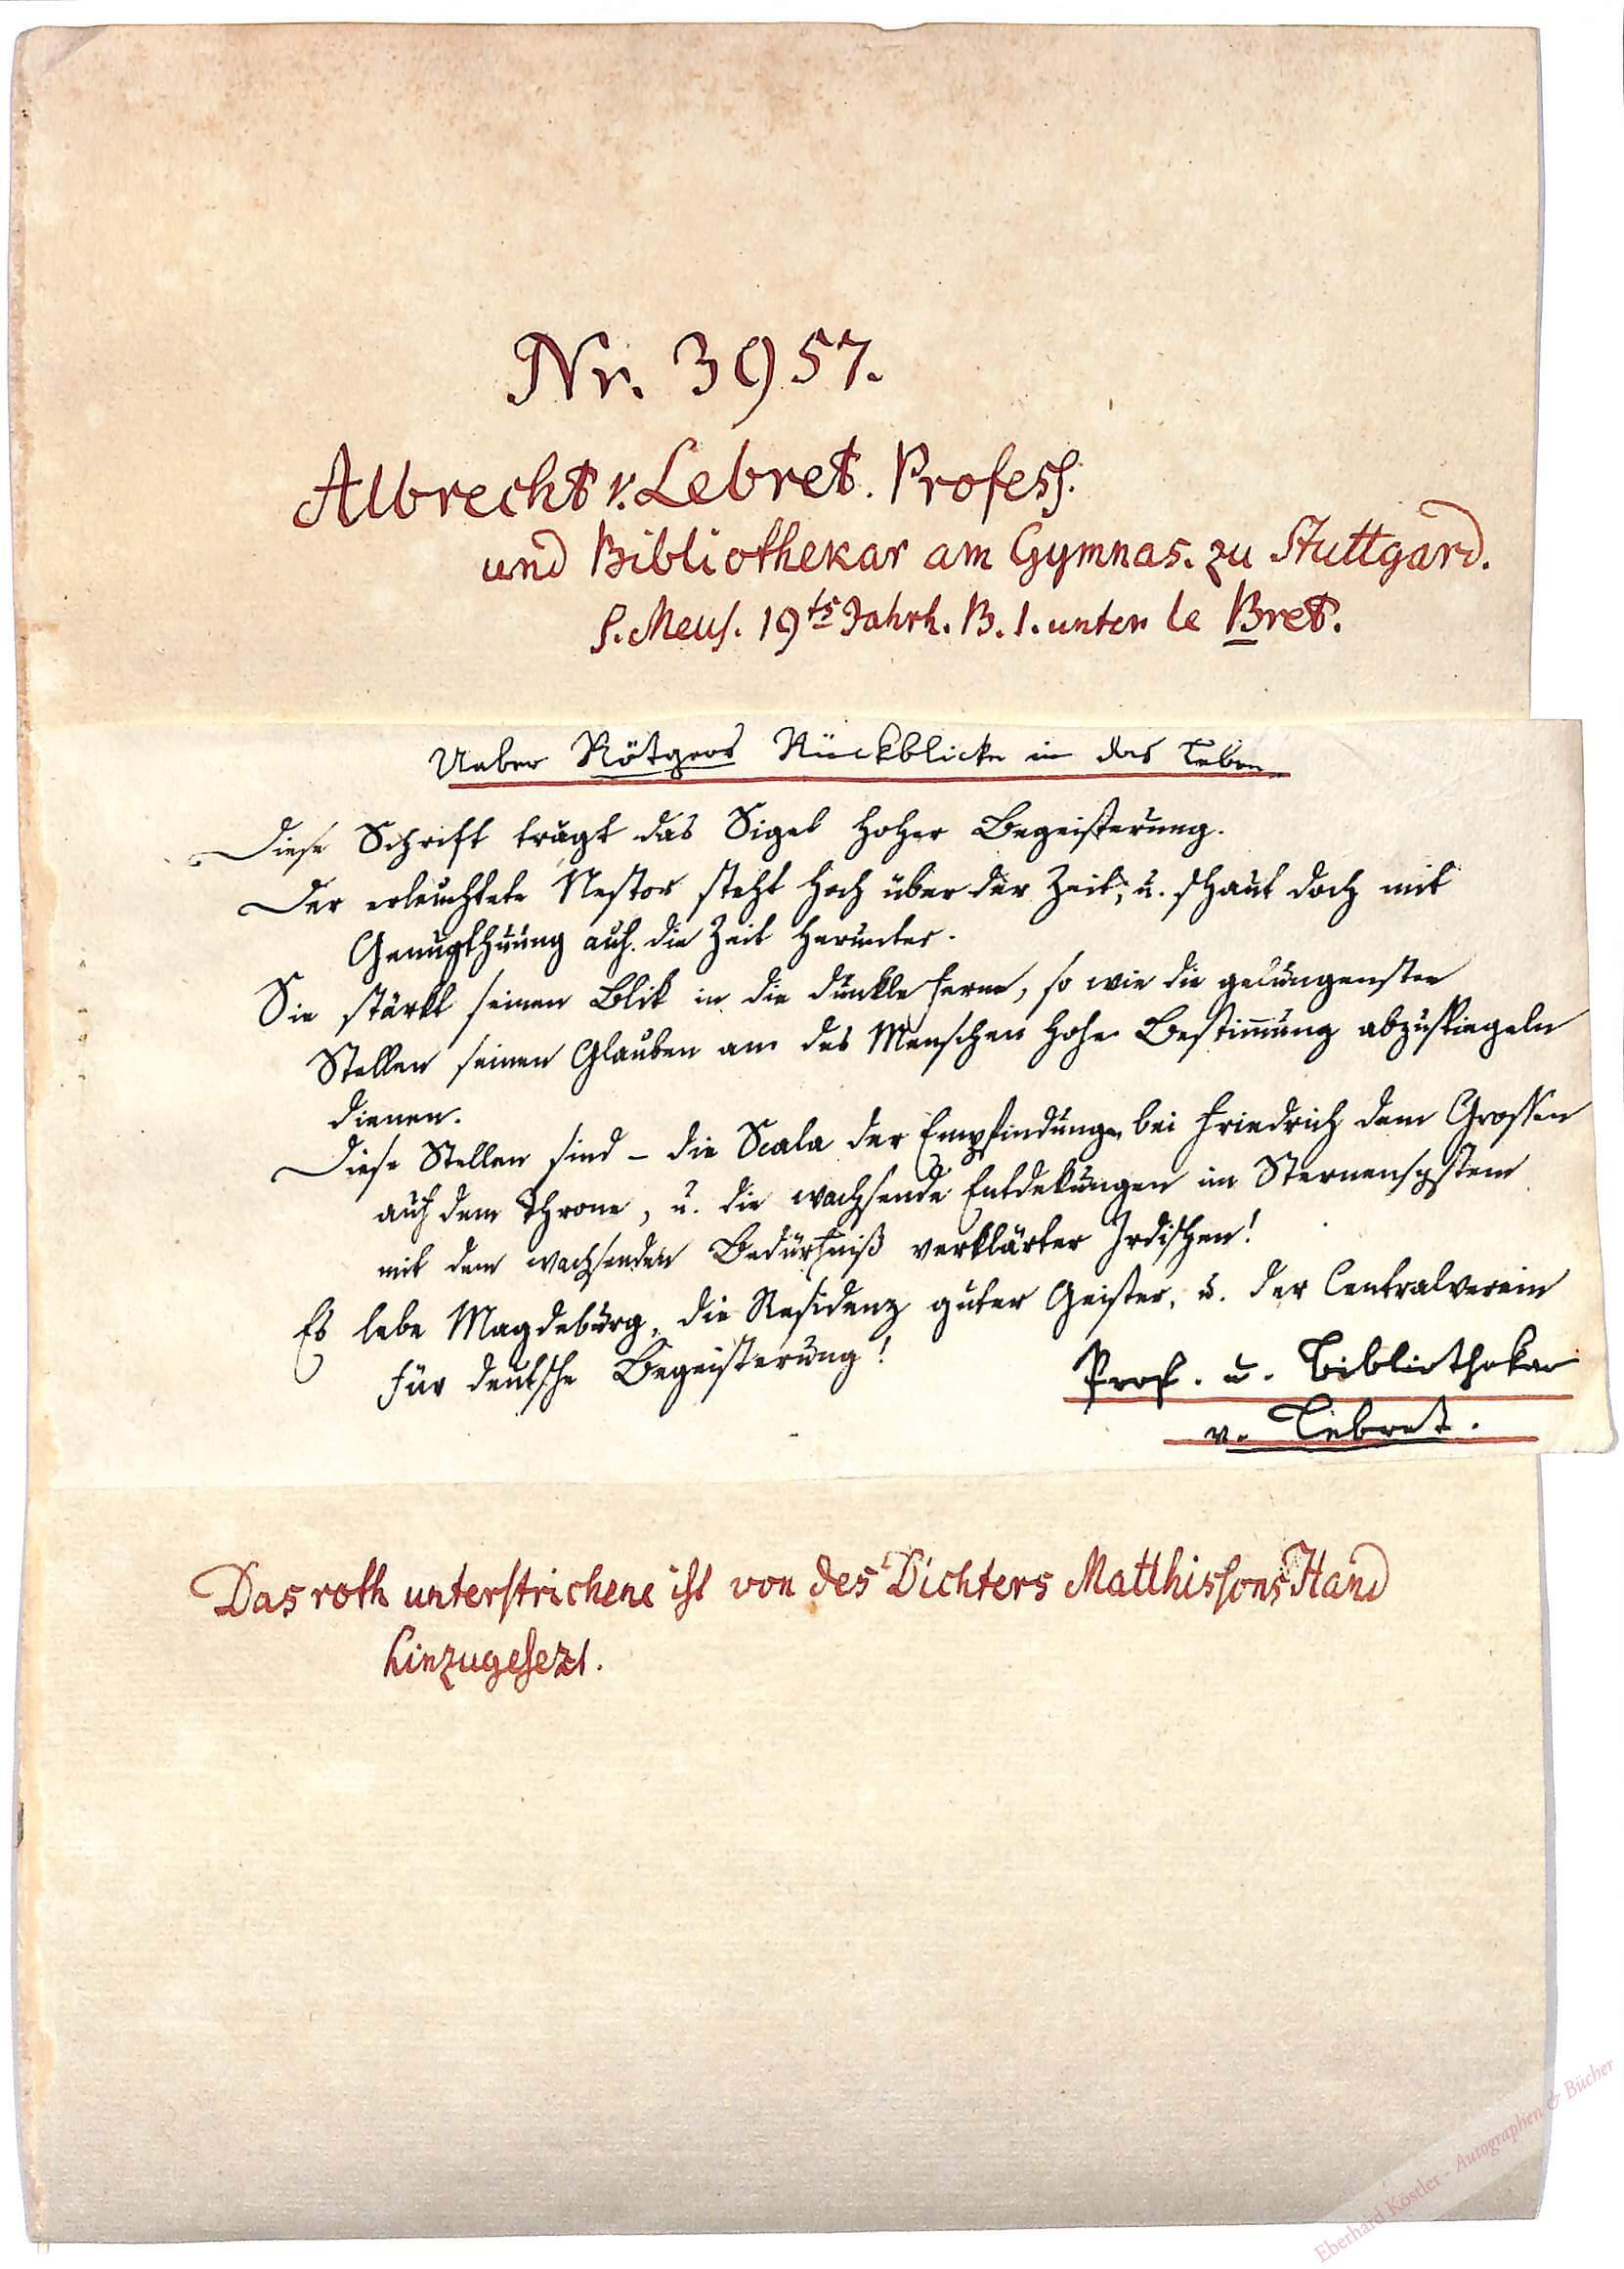 Nr. 3957.
Albrecht v. Lebret. Profess.
und Bibliothekar am Gymnas. zu Stuttgard.
S. Meus. 19ts Jahrh. B. 1. unter le Bret.
Ueber Rötgers Rückblicke in das Leben
Diese Schrift trägt das Sigel hoher Begeisterung.
Der erleuchtete Nestor steht hoch über der Zeit, u. schaut doch mit
Genugthuung auf die Zeit herunter.
Sie stärkt seinen Blik in die dunkle Ferne, so wie die gelungensten
Stellen seinen Glauben an des Menschen hohe Bestim̄ung abzuspiegeln
dienen.
Diese Stellen sind – die Scala der Empfindungen bei Friedrich dem Grossen
auf dem Throne, u. die wachsende Entdekungen im Sternensystem
mit dem wachsenden Bedürfniß verklärter Irdischen!
Es lebe Magdeburg, die Residenz guter Geister, u. der Centralverein
für deutsche Begeisterung!
Prof. u. Bibliothekar
v. Lebret.
Das roth unterstrichene ist von des Dichters Matthissons Hand
hinzugesezt.
Eberhard Köstler - Autographen & Bücher